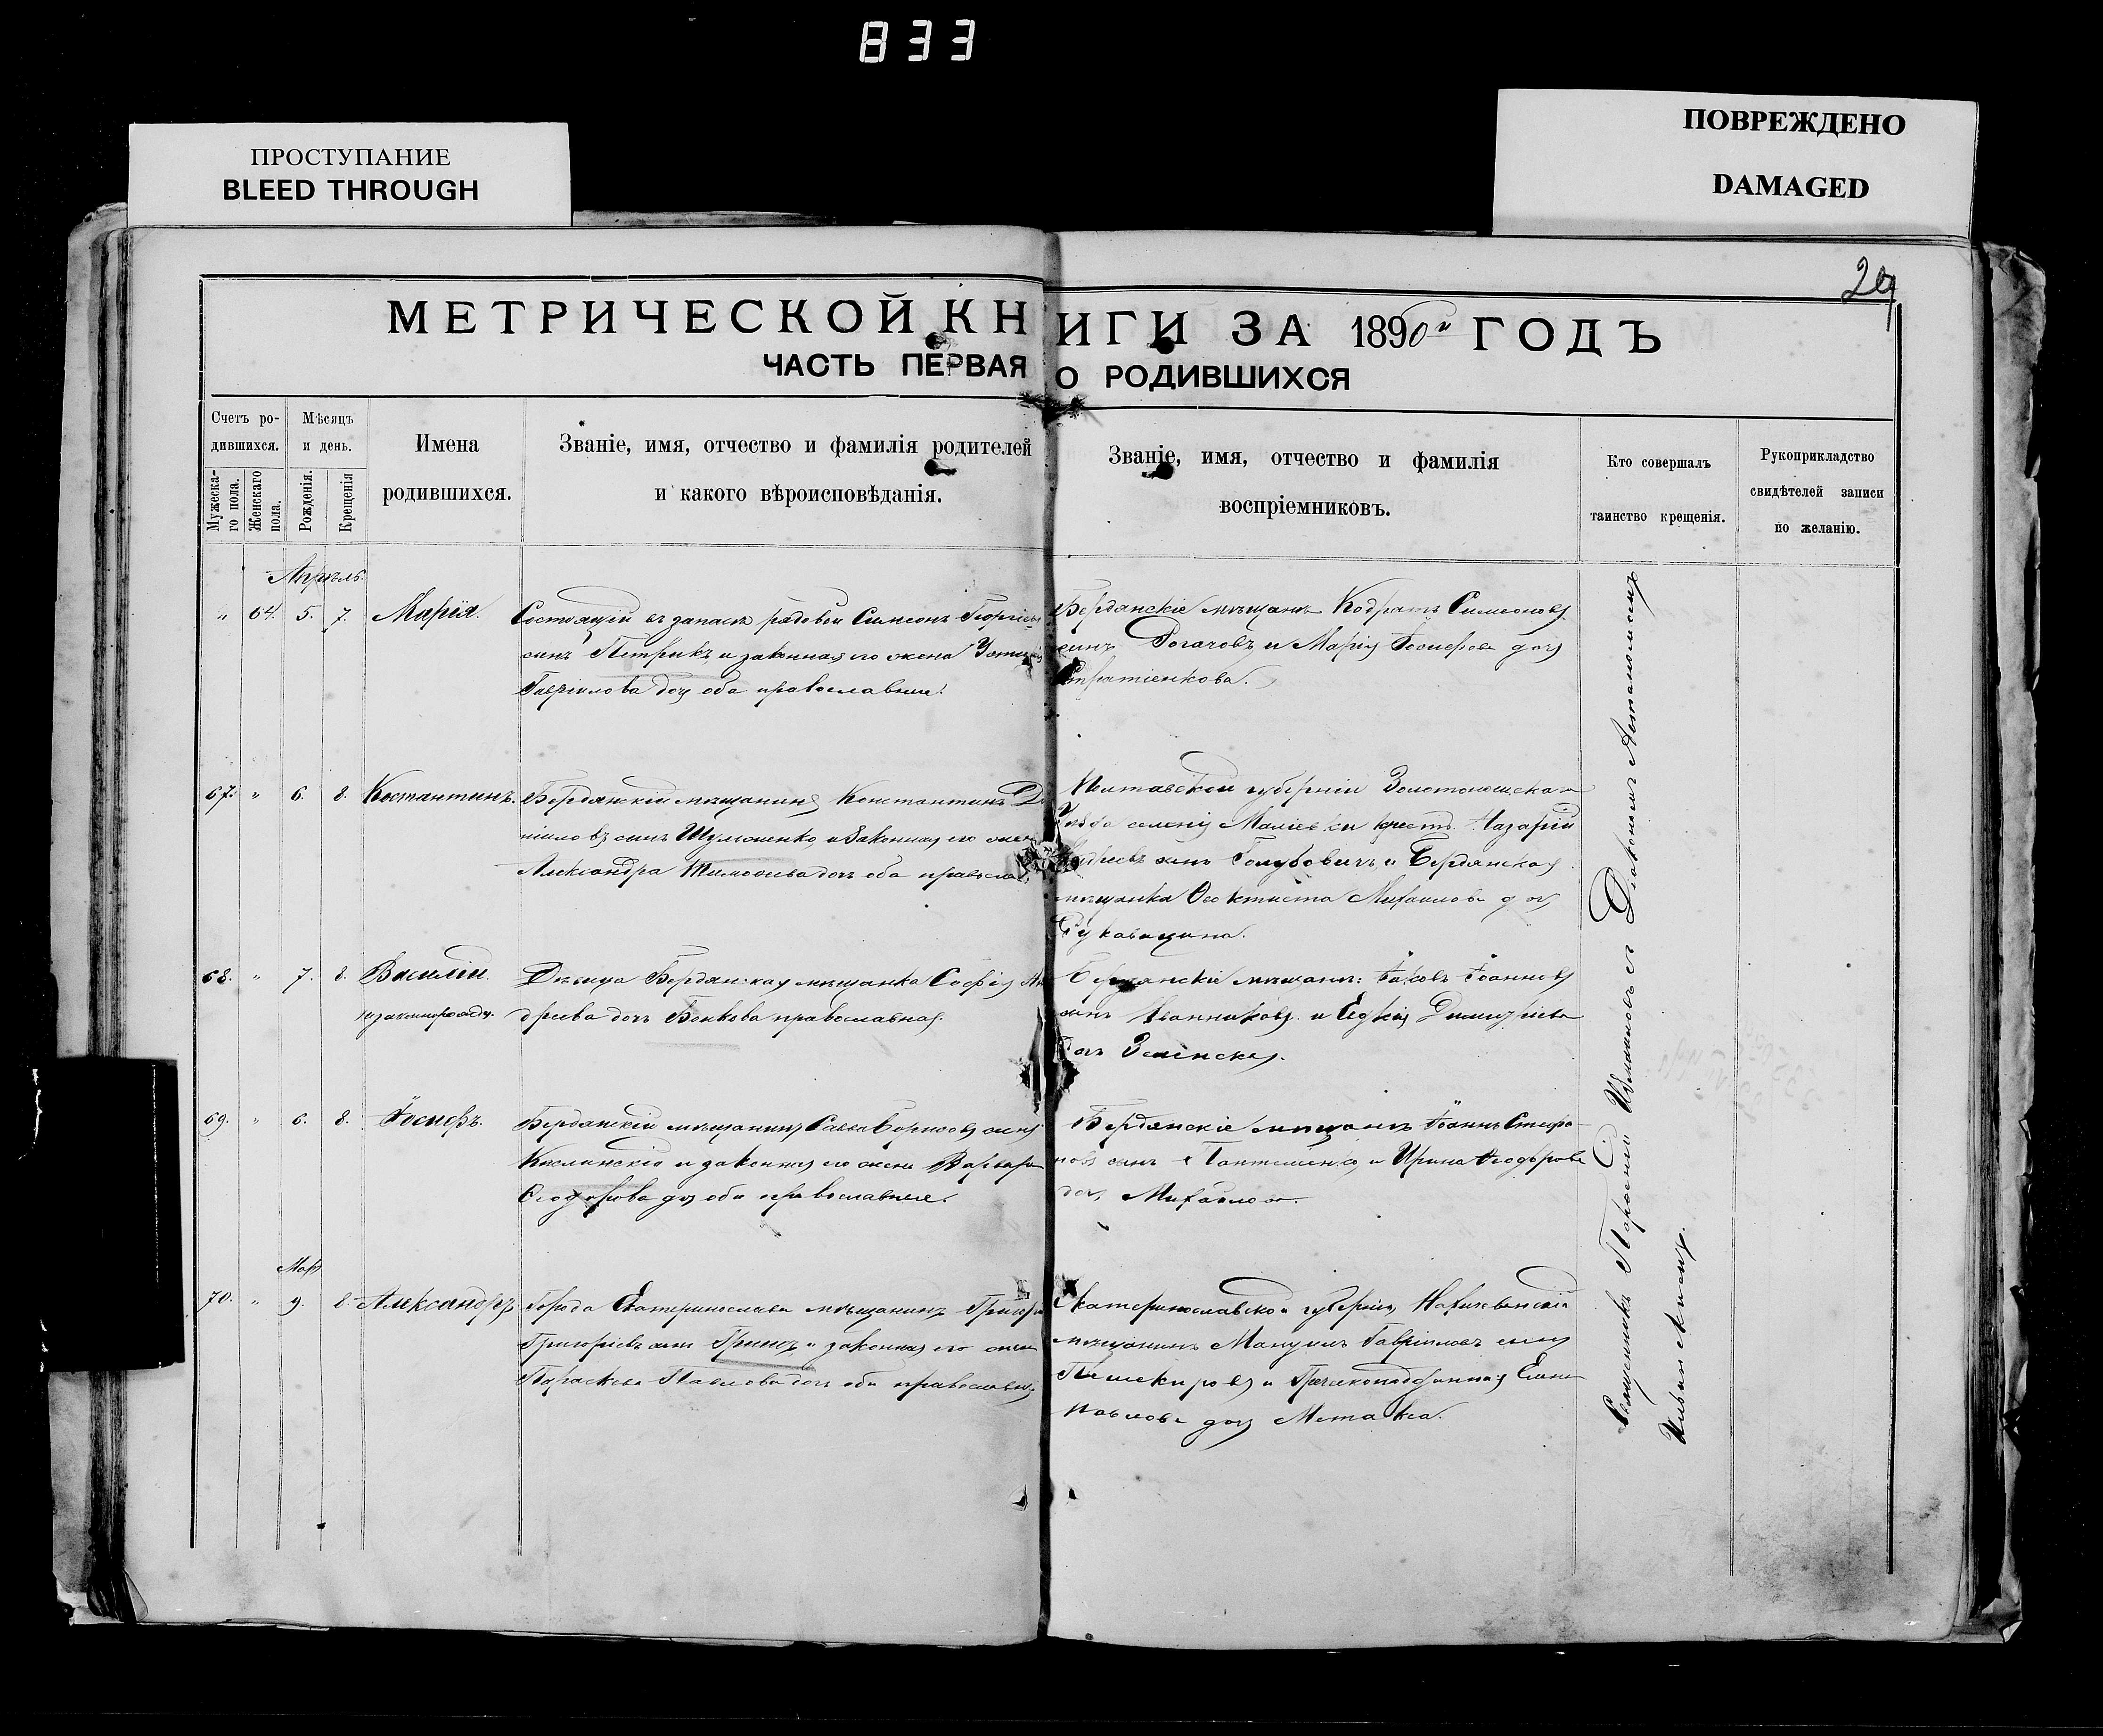 833
ПРОСТУПАНИЕ
BLEED THROUGH
ПОВРЕЖДЕНО
DAMAGED
МЕТРИЧЕСКОЙ КНИГИ ЗА 1890й ГОДЪ
ЧАСТЬ ПЕРВАЯ О РОДИВШИХСЯ
Счетъ ро-
дившихся.
Мужеска-
го пола.
Женскаго
пола.
Мѣсяцъ
и день.
Рожденія.
Крещенія
Имена
родившихся.
Званіе, имя, отчество и фамилія родителей
и какого вѣроисповѣданія.
Званіе, имя, отчество и фамилія
воспріемниковъ.
Кто совершалъ
таинство крещенія.
Рукоприкладство
свидѣтелей записи
по желанію.
Апрѣль
" 64. 5. 7. Марія.
Состоящій въ запасѣ рядовой Симеонъ Георгіевъ
сынъ Петрикъ и законная его жена
Гавріилова дочь оба православные.
Бердянскіе мѣщане Кодратъ Симеоновъ
сынъ Рогачовъ и Марія Іосифова дочь
67. " 6. 8. Константинъ.
Бердянскій мѣщанинъ Константинъ Д
ніиловъ сынъ Шульженко и законная его жена
Александра Тимофеева дочь оба правосла
Полтавской губерніи Золотоношскаго
Уѣзда селенія крест. Назарій
сынъ Голубовичъ и Бердянская
мѣщанка Феоктиста Михаилова дочь
Рукавицина.
68. " 7. 8. Василій.
незаконнорожд.
Дѣвица Бердянская мѣщанка Софія Ан
дреева дочь Бокова православная.
Бердянскіе мѣщане: Іаковъ Іоанновъ
сынъ Иванниковъ и Димитріева
дочь
69. " 6. 8. Іосифъ.
Бердянскій мѣщанинъ Савва Борисовъ сынъ
и законная его жена Варвара
Феодорова дочь оба православные.
Бердянскіе мѣщане Іоаннъ Стефа-
новъ сынъ и Ирина Феодорова
дочь
Мар
70. " 9. 8. Александръ
Города Екатеринослава мѣщанинъ Григорій
Григорьевъ сынъ и законная его жена
Параскева Павлова дочь оба православн
Екатеринославской губерніи, Нахичеванскій
мѣщанинъ Мануилъ Гавріиловъ сынъ
и Греческоподданная Елена
Павлова дочь Метакса.
Священникъ съ Діакономъ